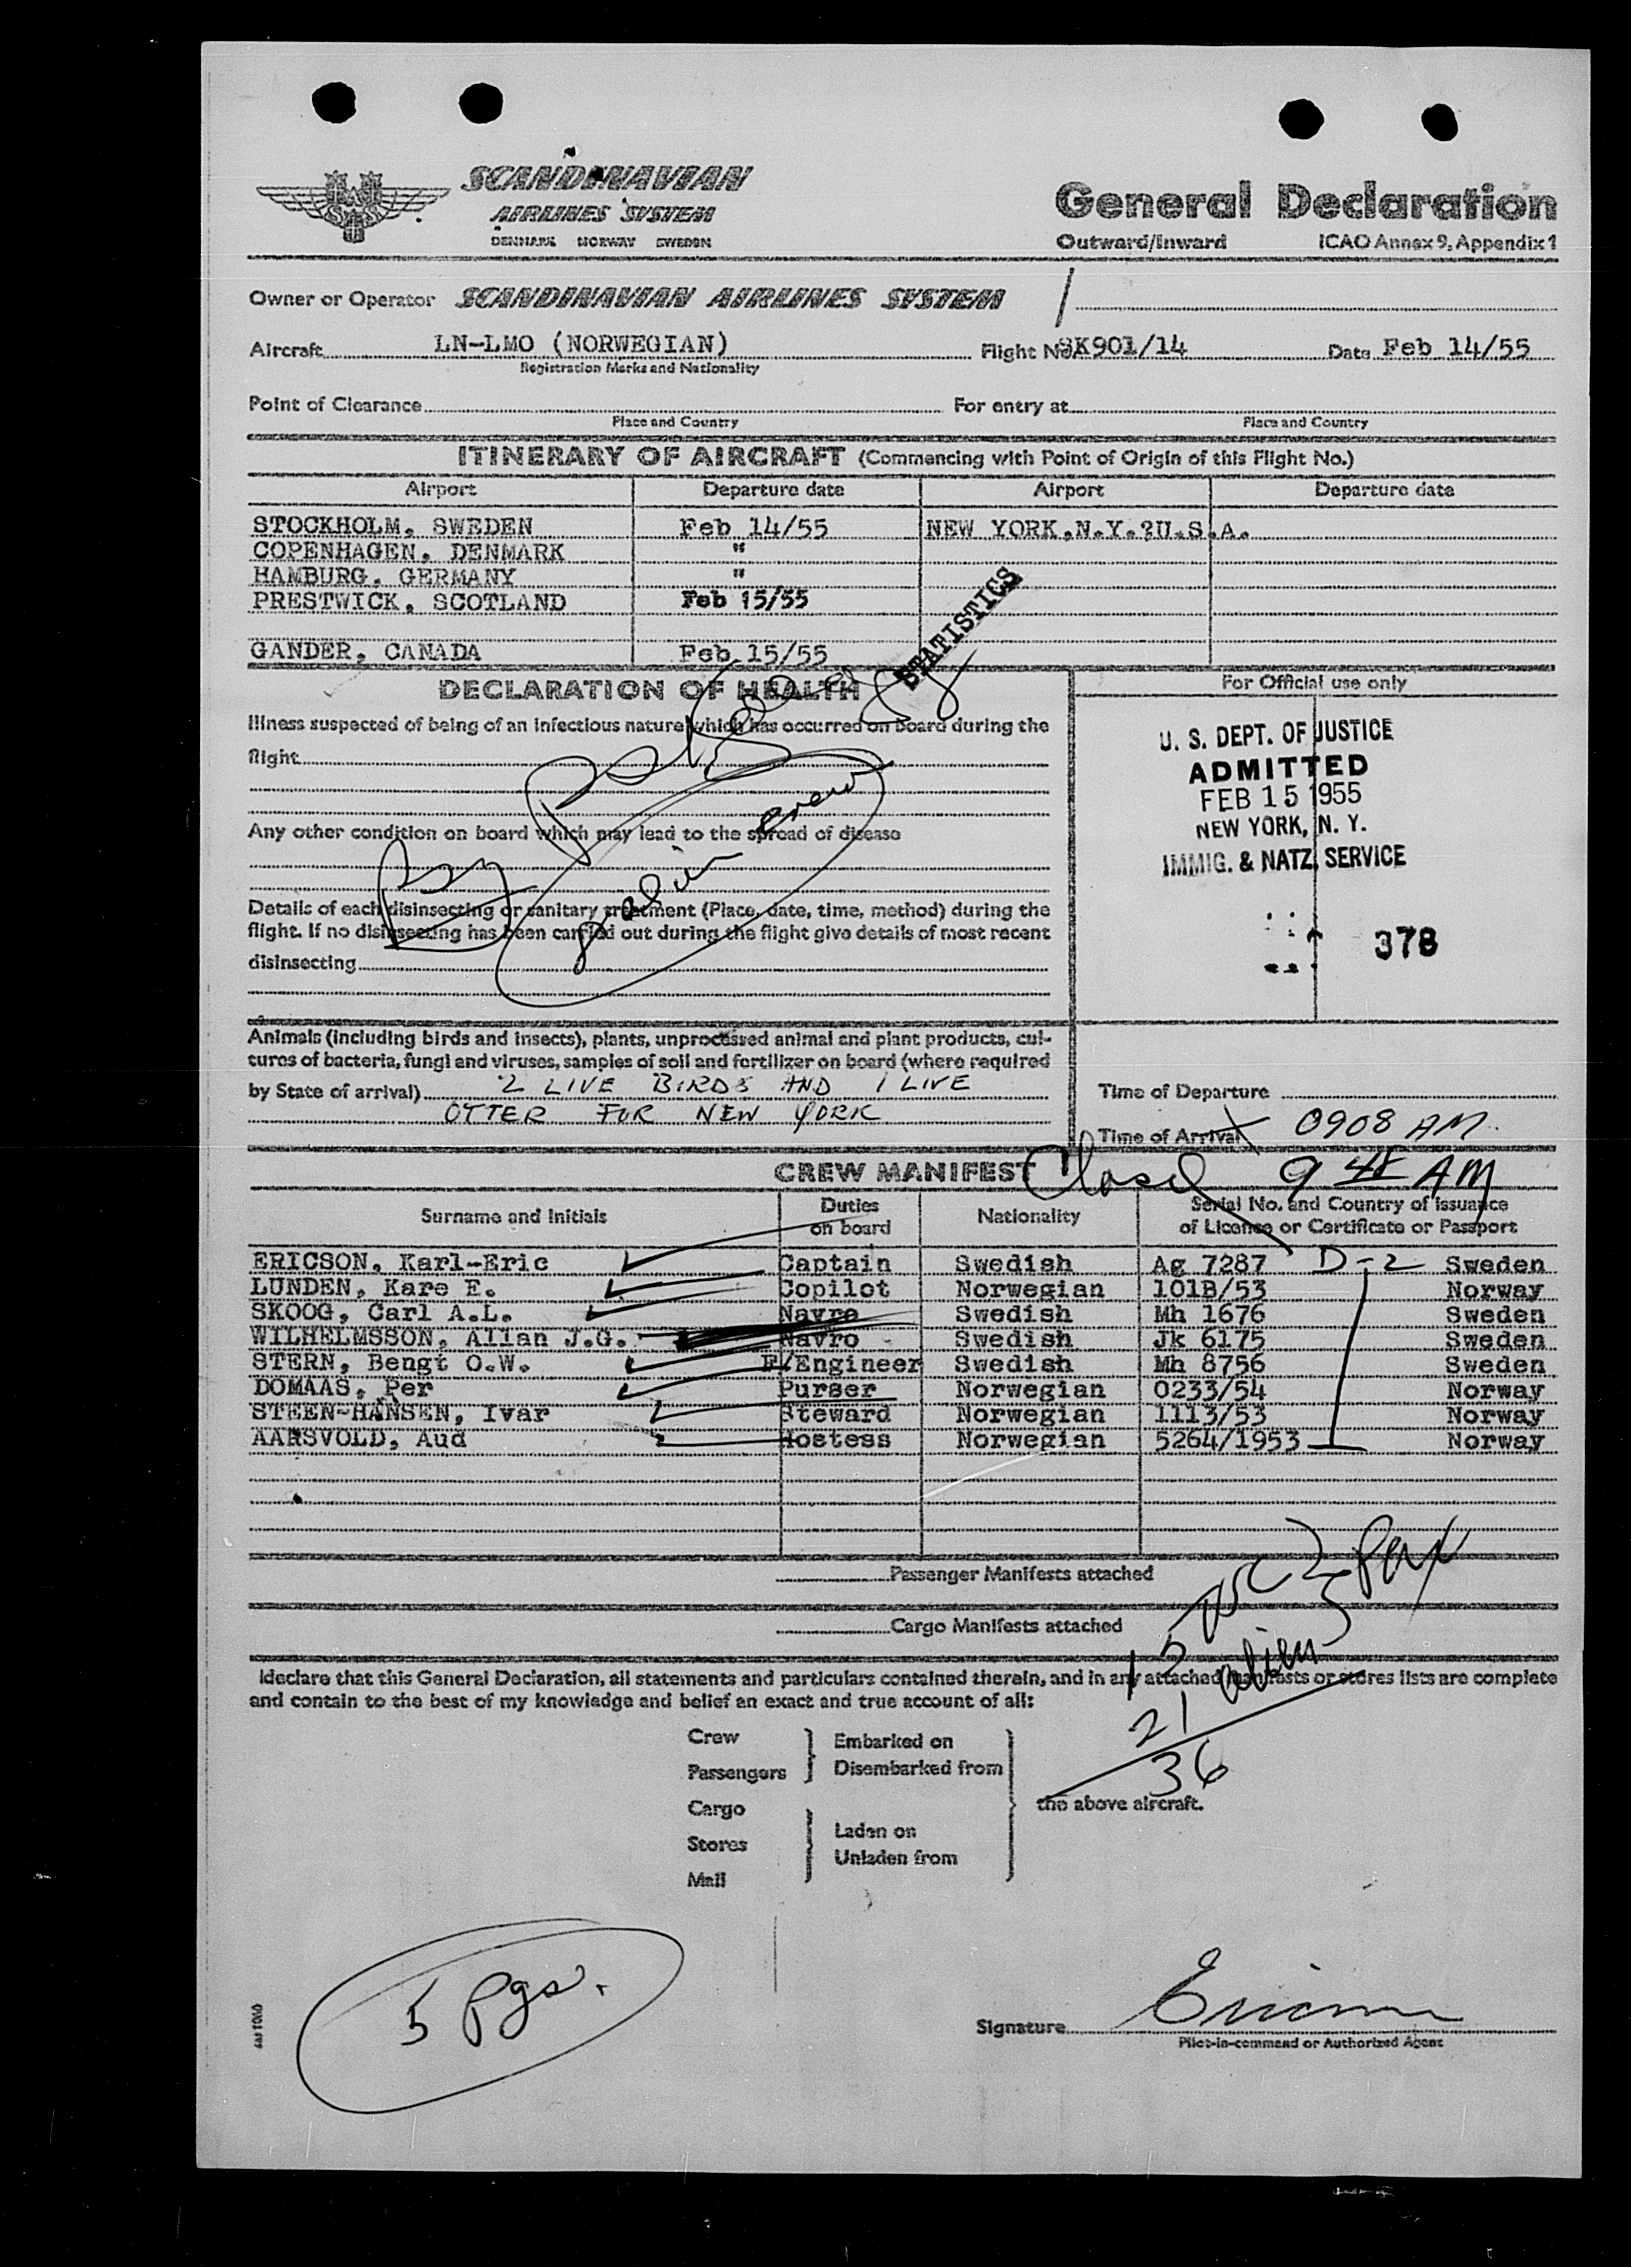 SCANDINAVIAN
AIRLINES SYSTEM
DENMARK NORWAY SWEDEN
General Declaration
Outward/Inward ICAO Annex 9, Appendix 1
Owner or Operator SCANDINAVIAN AIRLINES SYSTEM
Aircraft LN-LMO (NORWEGIAN) Flight No. SK901/14 Date Feb 14/55
Registration Marks and Nationality
Point of Clearance For entry at
Place and Country Place and Country
ITINERARY OF AIRCRAFT (Commencing with Point of Origin of this Flight No.)
Airport Departure date Airport Departure date
STOCKHOLM, SWEDEN Feb 14/55 NEW YORK,N.Y.?U.S.A.
COPENHAGEN, DENMARK "
HAMBURG, GERMANY "
PRESTWICK, SCOTLAND Feb 15/55
GANDER, CANADA Feb 15/55
STATISTICS
DECLARATION OF HEALTH
Illness suspected of being of an infectious nature which has occurred on board during the
flight
Any other condition on board which may lead to the spread of disease
Details of each disinsecting or sanitary treatment (Place, date, time, method) during the
flight. If no disinsecting has been carried out during the flight give details of most recent
disinsecting
alien crew
For Official use only
U. S. DEPT. OF JUSTICE
ADMITTED
FEB 15 1955
NEW YORK, N. Y.
IMMIG. & NATZ. SERVICE
378
Animals (including birds and insects), plants, unprocessed animal and plant products, cul-
tures of bacteria, fungi and viruses, samples of soil and fertilizer on board (where required
by State of arrival) 2 LIVE BIRDS AND 1 LIVE
OTTER FOR NEW YORK
Time of Departure
Time of Arrival 0908 AM.
Closed 9 45 AM
CREW MANIFEST
Surname and Initials Duties on board Nationality Serial No. and Country of issuance of License or Certificate or Passport
ERICSON, Karl-Eric Captain Swedish Ag 7287 D-2 Sweden
LUNDEN, Kare E. Copilot Norwegian 101B/53 Norway
SKOOG, Carl A.L. Navro Swedish Mh 1676 Sweden
WILHELMSSON, Allan J.G. Navro Swedish Jk 6175 Sweden
STERN, Bengt O.W. F/Engineer Swedish Mh 8756 Sweden
DOMAAS, Per Purser Norwegian 0233/54 Norway
STEEN-HANSEN, Ivar Steward Norwegian 1113/53 Norway
AARSVOLD, Aud Hostess Norwegian 5264/1953 Norway
Passenger Manifests attached
Cargo Manifests attached
Pax
15
alien
21
36
I declare that this General Declaration, all statements and particulars contained therein, and in any attached manifests or stores lists are complete
and contain to the best of my knowledge and belief an exact and true account of all:
Crew
Passengers
Embarked on
Disembarked from
Cargo
Stores
Mail
Laden on
Unladen from
the above aircraft.
5 pgs.
Signature Ericson
Pilot-in-command or Authorized Agent